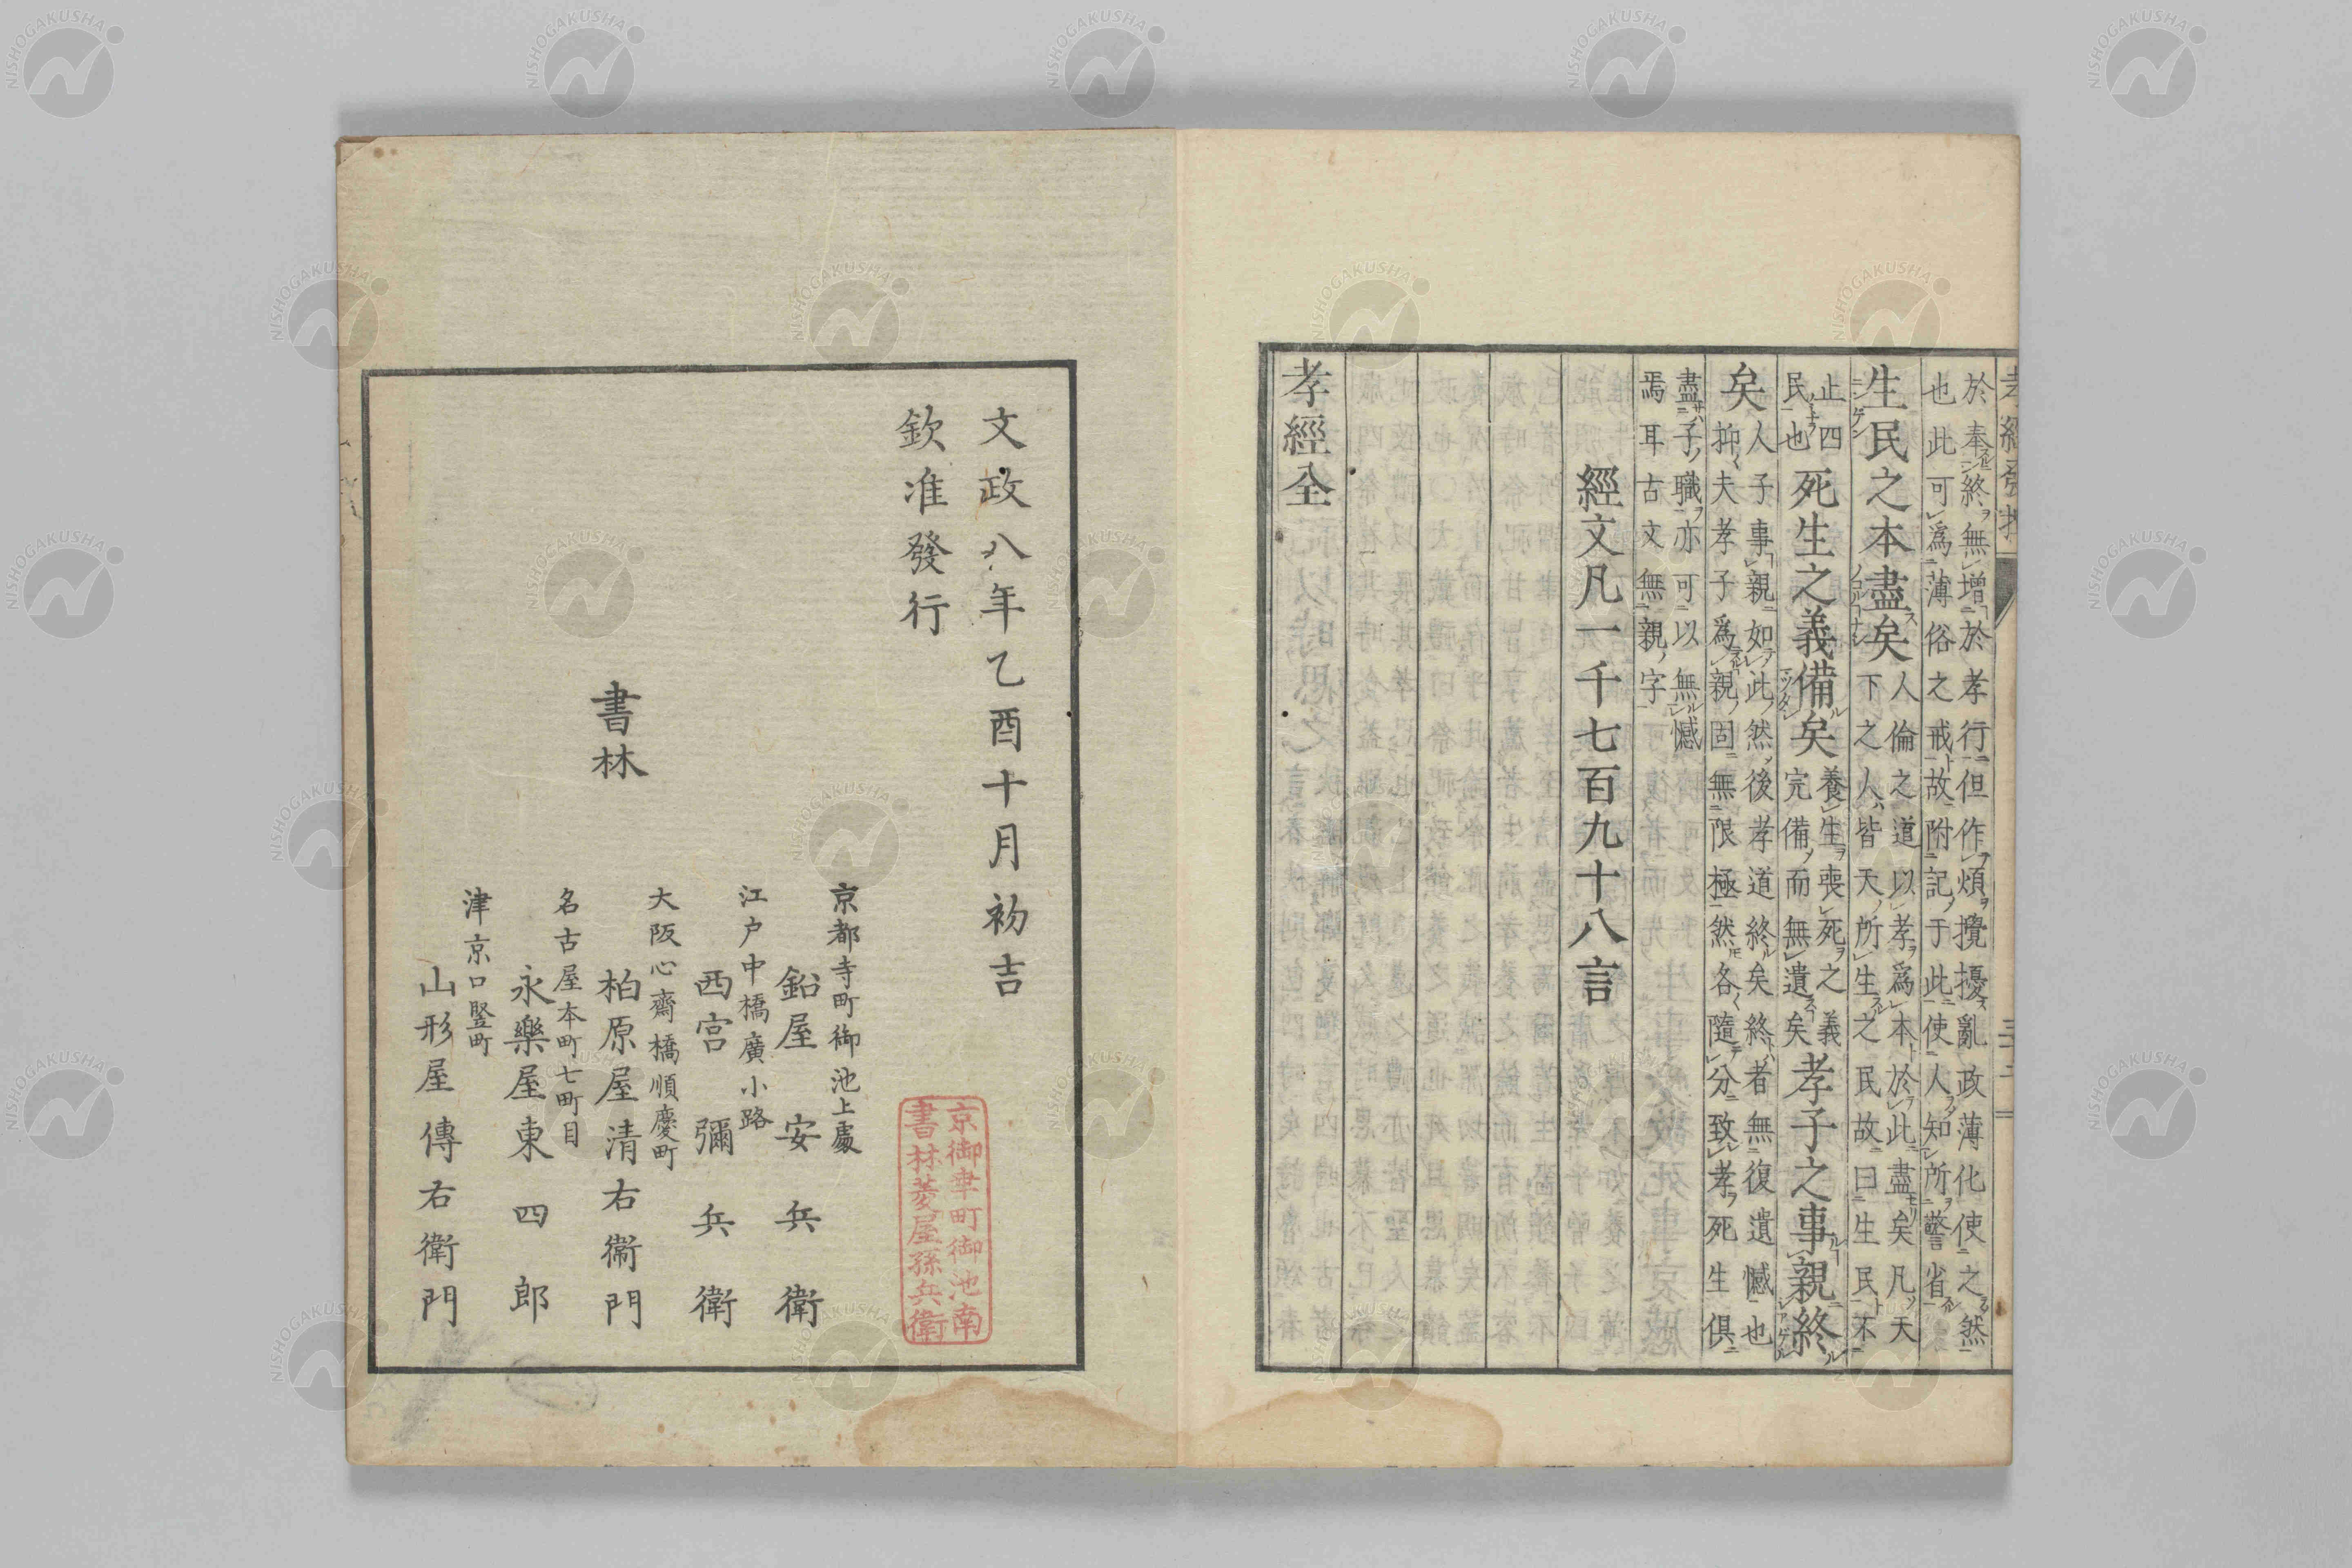 於奉終無增於孝行但作煩攪擾亂政薄化使之然
也此可爲薄俗之戒故附記于此使人知所警省
生民之本盡矣
人倫之道以孝爲本於此盡矣凡天
下之人皆天所生之民故曰生民不
止四
民也
死生之義備矣
養生喪死之義
完備而無遺矣
孝子之事親終
矣
人子事親如此然後孝道終矣終者無復遺憾也
抑夫孝子爲親固無限極然各隨分致孝死生俱
盡子職亦可以無憾
焉耳古文無親字
經文凡一千七百九十八言
孝經全
文政八年乙酉十月初吉
欽准發行
京御幸町御池南
書林菱屋孫兵衛
書林
京都寺町御池上處
鉛屋安兵衛
江户中橋廣小路
西宮彌兵衛
大阪心齋橋順慶町
柏原屋清右衛門
名古屋本町七町目
永樂屋東四郎
津京口竪町
山形屋傳右衛門
NISHOGAKUSHA